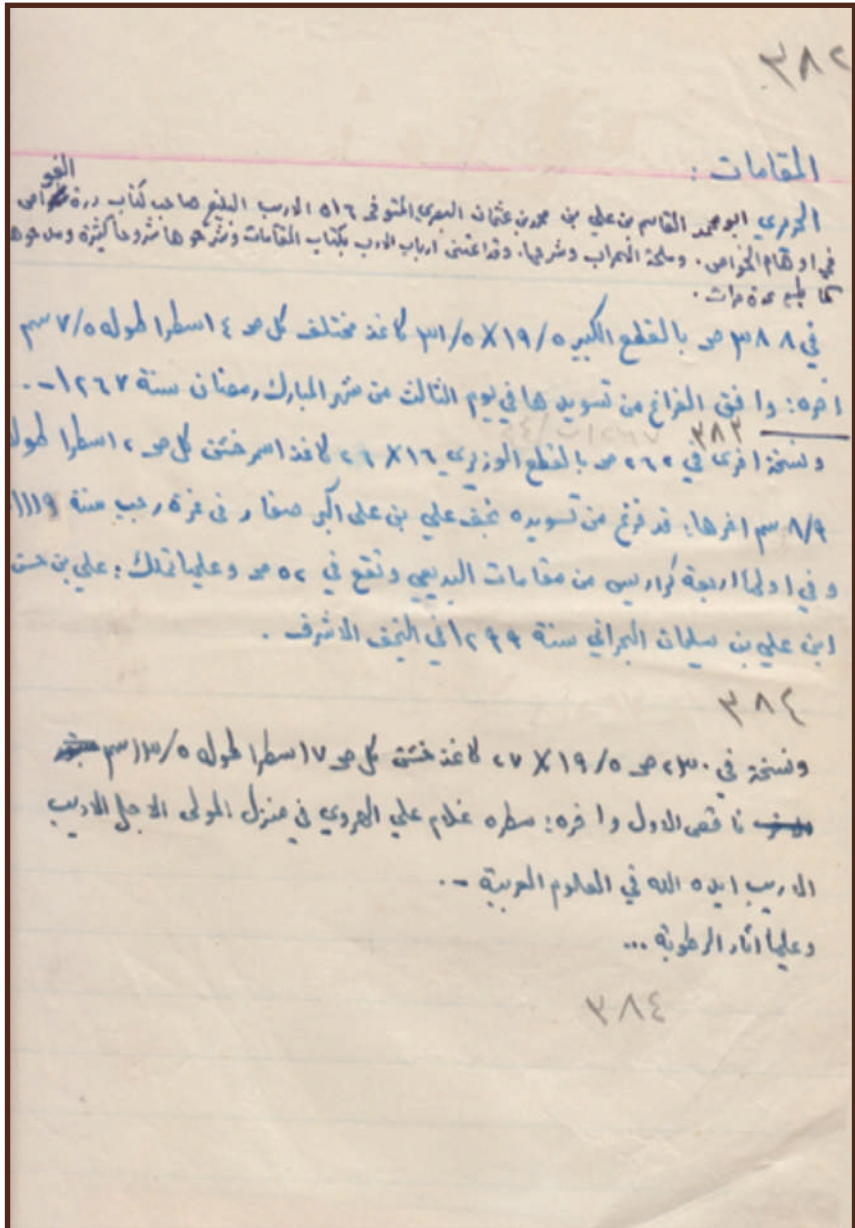 ٣٨٢
المقامات :
الحريري ابو محمد القاسم بن علي بن محمد بن عثمان البصري المتوفى ٥١٦ الاديب البليغ صاحب كتاب درة الغواص
في اوهام الخواص . وملحة الاعراب وشرحها . وقد اعتنى ارباب الادب بكتاب المقامات وشرحوها شروحاً كثيرة
كما طبع عدة مرات .
في ٣٨٨ صـ بالقطع الكبير ١٩/٥ X ٣١/٥ كاغذ مختلف كل صـ ٤ اسطر طوله ٧/٥ سم
اخره : وافق الفراغ من تسويدها في يوم الثالث من شهر المبارك رمضان سنة ١٢٦٧ -.
٣٨٣
ونسخة اخرى في ٢٦٢ صـ بالقطع الوزيري ١٦ X ٢٦ كاغذ اسمر خشن كل صـ ٢ اسطرا طوله
٨/٩ سم اخرها : قد فرغ من تسويده نجف علي بن علي اكبر صفار في غرة رجب سنة ١١١٩
وفي اولها اربعة كراريس من مقامات البديعي وتقع في ٥٢ صـ وعليها تملك : علي بن حسن
ابن علي بن سليمان البحراني سنة ١٢٩٩ في النجف الاشرف .
٣٨٤
ونسخة في ٢٣٠ صـ ١٩/٥ X ٢٧ كاغذ خشن كل صـ ١٧ سطرا طوله ١٣/٥ سم
ناقص الاول واخره : سطره غلام علي الهروي في منزل المولى الاجل الاديب
الاريب ايده الله في العلوم العربية -.
وعليها اثار الرطوبة ...
٣٨٤